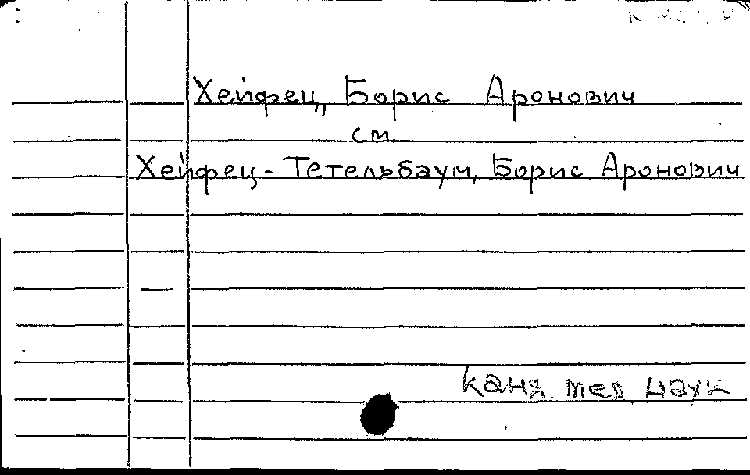 Хейфец, Борис Аронович
см.
Хейфец - Тетельбаум, Борис Аронович
канд. мед. наук